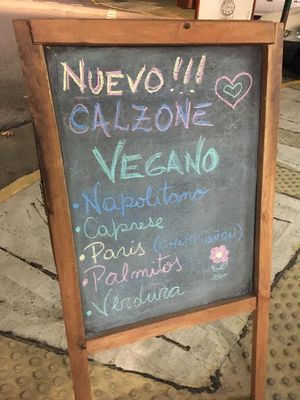 NUEVO!!!
CALZONE
VEGANO
• Napolitano
• Caprese
• Paris (CHAMPIGNON)
• Palmitos
• Verdura